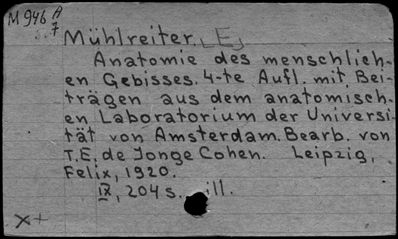 M 946 A
7
Mühlreiter. [E]
Anatomie des menschlich-
en Gebisses. 4-te Aufl. mit Bei-
trägen aus dem anatomisch-
en Laboratorium der Universi-
tät von Amsterdam. Bearb. von
T.E. de Jonge Cohen. Leipzig,
Felix, 1920.
IX, 204 s. ill.
x+